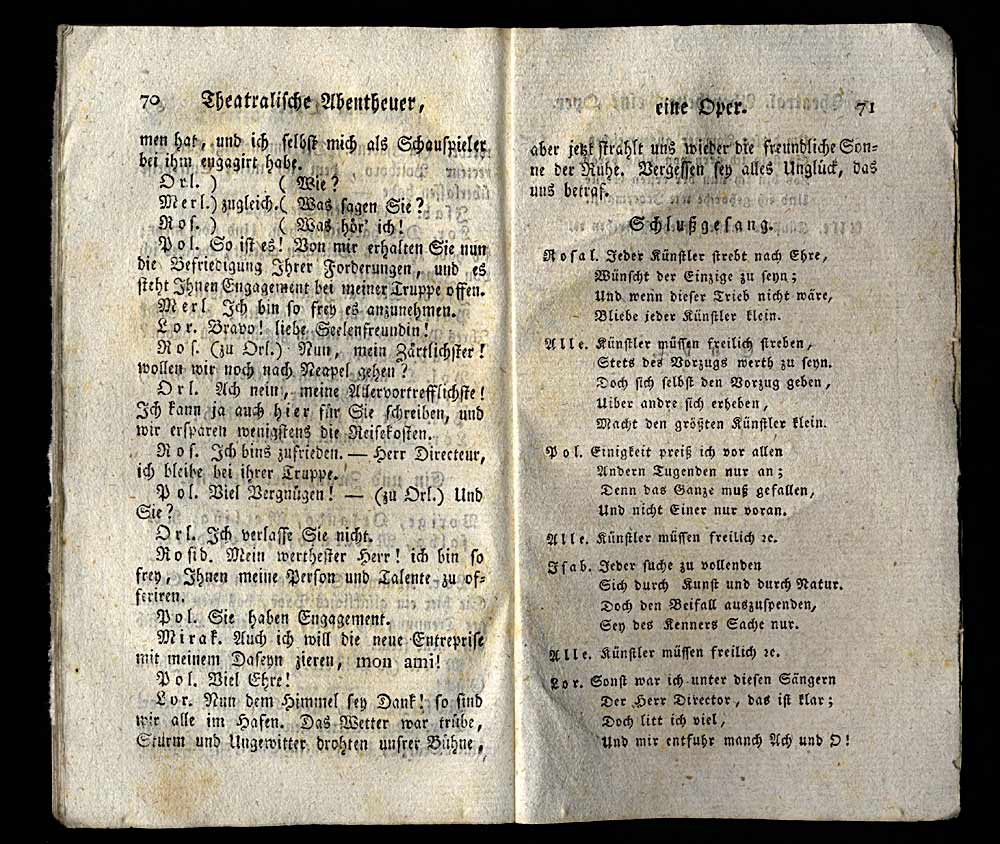 70 Theatralische Abentheuer,
men hat, und ich selbst mich als Schauspieler
bei ihm engagirt habe.
Orl. ) ( Wie?
Merl.) zugleich.( Was sagen Sie?
Ros. ) ( Was hör' ich!
Pol. So ist es! Von mir erhalten Sie nun
die Befriedigung Ihrer Forderungen, und es
steht Ihnen Engagement bei meiner Truppe offen.
Merl. Ich bin so frey es anzunehmen.
Lor. Bravo! liebe Seelenfreundin!
Ros. (zu Orl.) Nun, mein Zärtlichster!
wollen wir noch nach Neapel gehen?
Orl. Ach nein, meine Allervortrefflichste!
Ich kann ja auch hier für Sie schreiben, und
wir ersparen wenigstens die Reisekosten.
Ros. Ich bins zufrieden. — Herr Directeur,
ich bleibe bei ihrer Truppe.
Pol. Viel Vergnügen! — (zu Orl.) Und
Sie?
Orl. Ich verlasse Sie nicht.
Rosid. Mein werthester Herr! ich bin so
frey, Ihnen meine Person und Talente zu of-
feriren.
Pol. Sie haben Engagement.
Mirak. Auch ich will die neue Entreprise
mit meinem Daseyn zieren, mon ami!
Pol. Viel Ehre!
Lor. Nun dem Himmel sey Dank! so sind
wir alle im Hafen. Das Wetter war trübe,
Sturm und Ungewitter drohten unsrer Bühne,
eine Oper. 71
aber jetzt strahlt uns wieder die freundliche Son-
ne der Ruhe. Vergessen sey alles Unglück, das
uns betraf.
Schlußgesang.
Rosal. Jeder Künstler strebt nach Ehre,
Wünscht der Einzige zu seyn;
Und wenn dieser Trieb nicht wäre,
Bliebe jeder Künstler klein.
Alle. Künstler müssen freilich streben,
Stets des Vorzugs werth zu seyn.
Doch sich selbst den Vorzug geben,
Uiber andre sich erheben,
Macht den größten Künstler klein.
Pol. Einigkeit preiß ich vor allen
Andern Tugenden nur an;
Denn das Ganze muß gefallen,
Und nicht Einer nur voran.
Alle. Künstler müssen freilich ꝛc.
Isab. Jeder suche zu vollenden
Sich durch Kunst und durch Natur.
Doch den Beifall auszuspenden,
Sey des Kenners Sache nur.
Alle. Künstler müssen freilich ꝛc.
Lor. Sonst war ich unter diesen Sängern
Der Herr Director, das ist klar;
Doch litt ich viel,
Und mir entfuhr manch Ach und O!